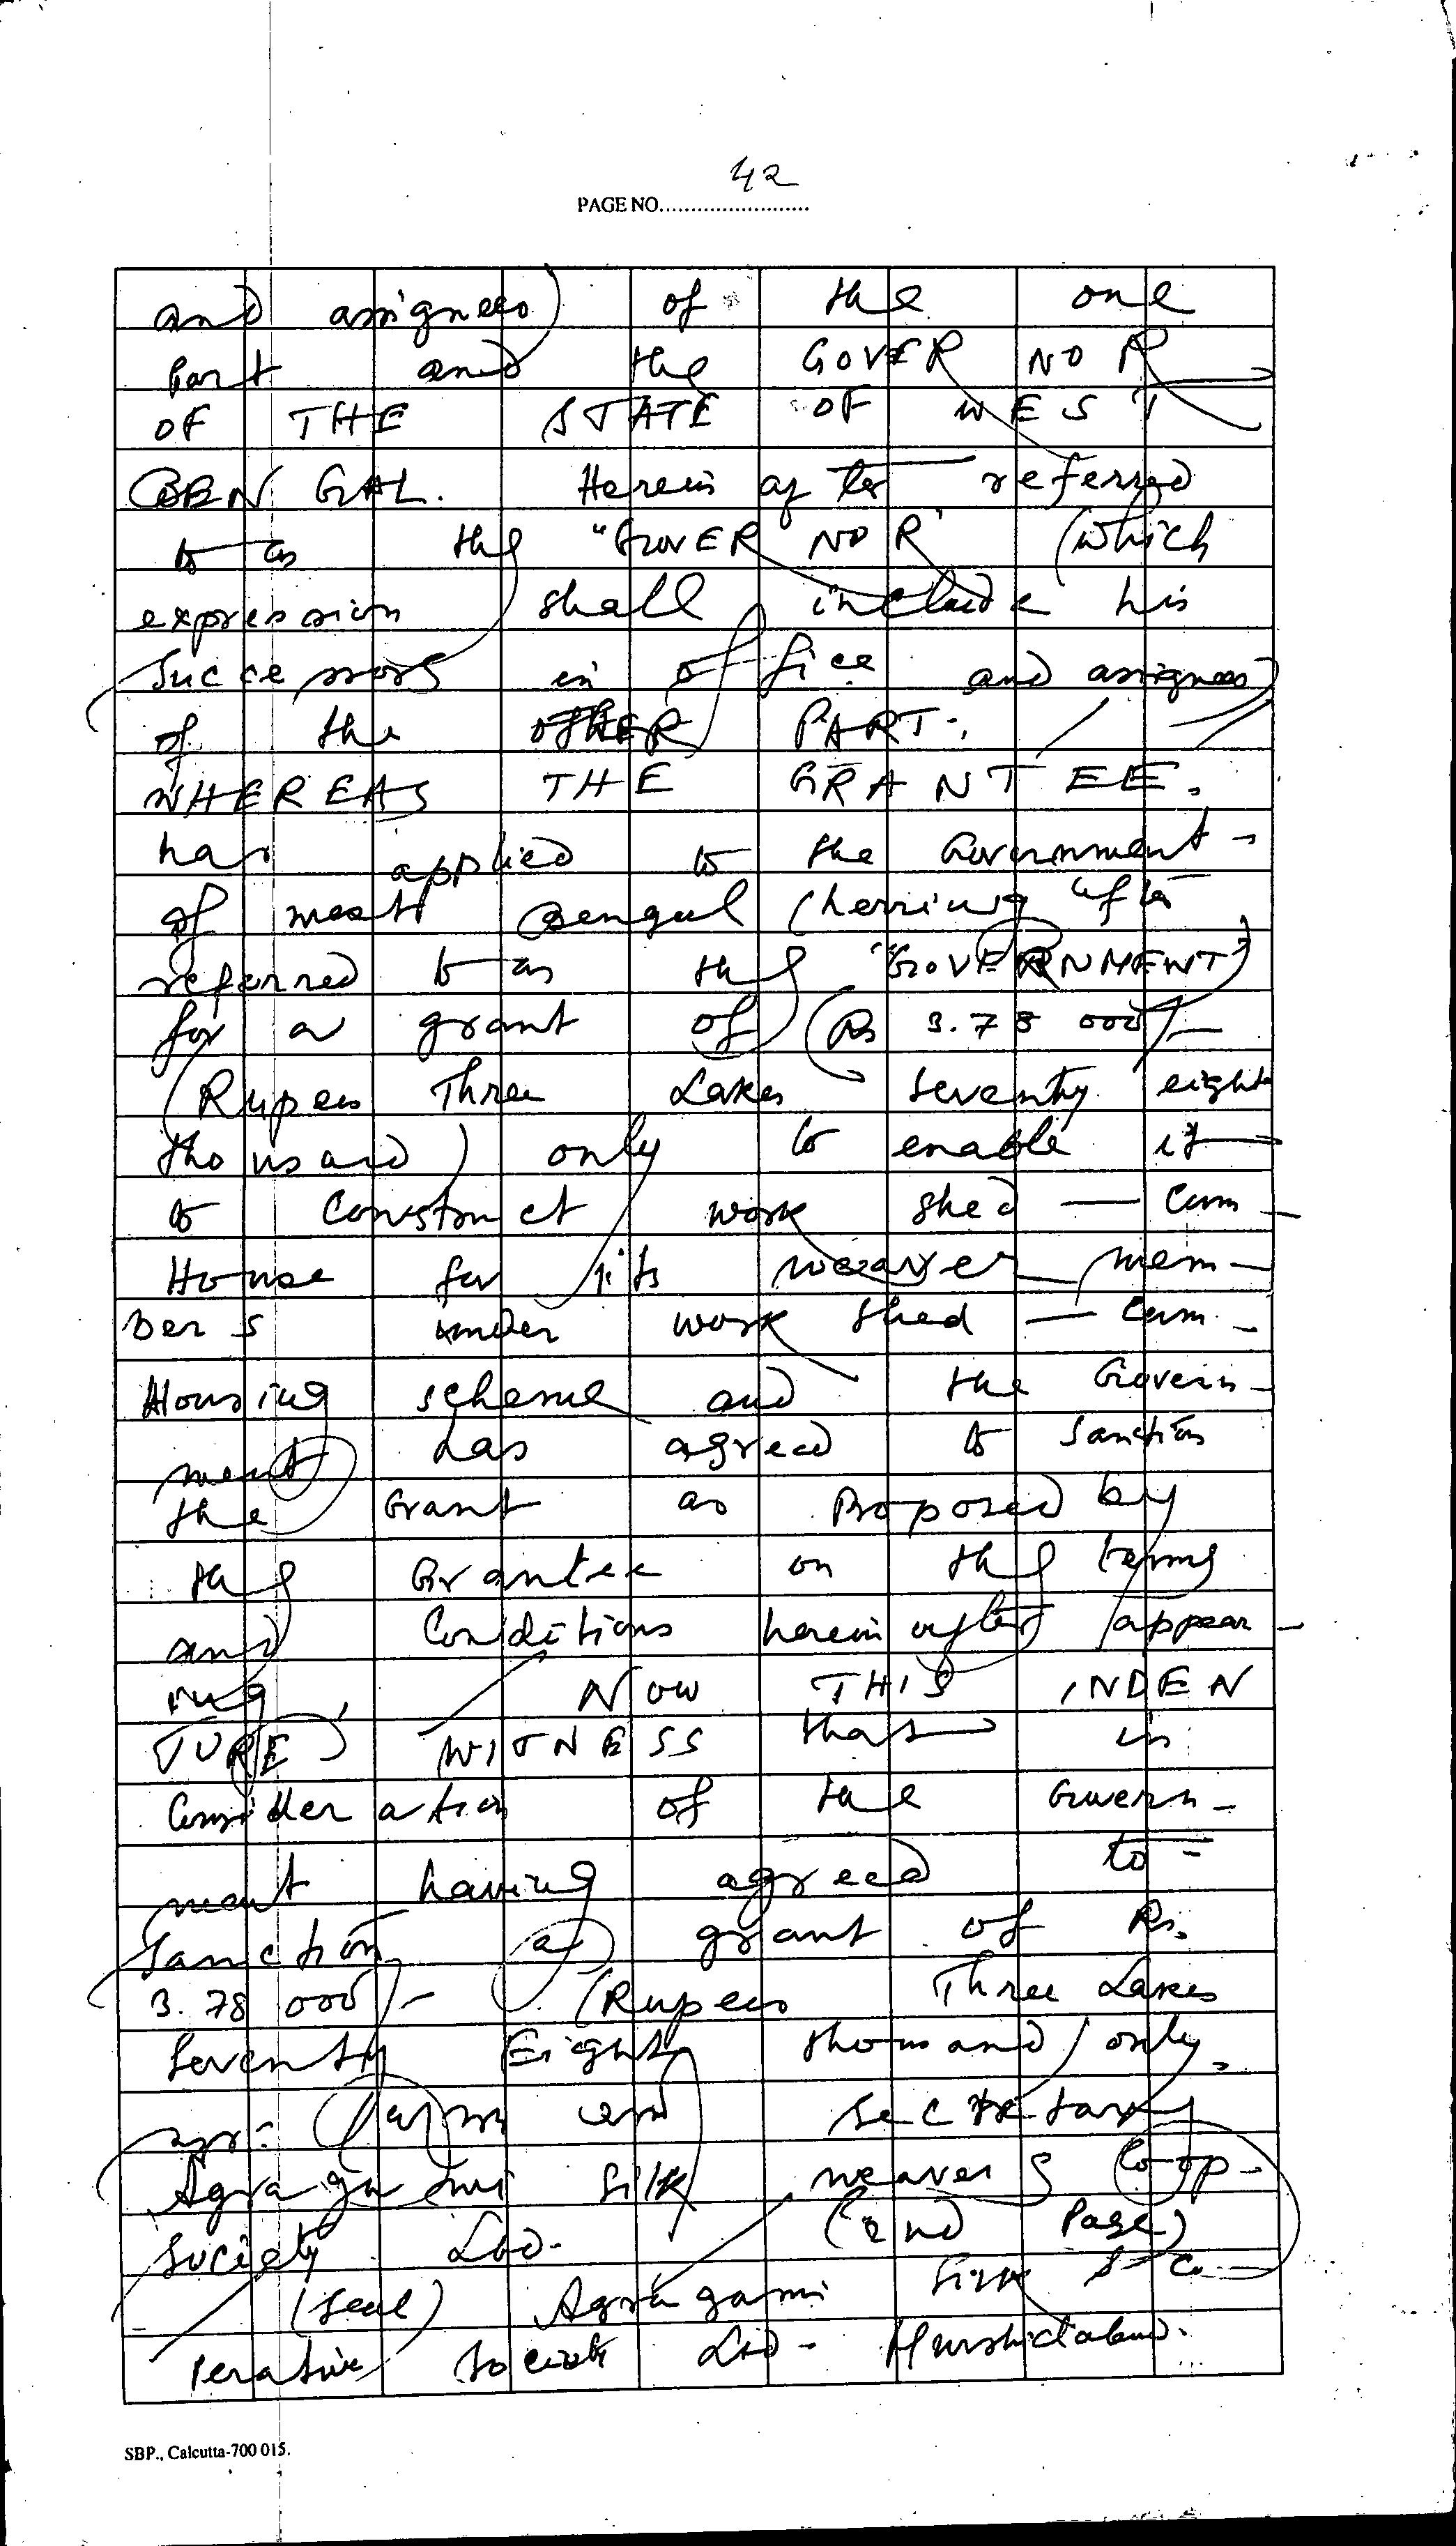 42
PAGE NO........................
and assignees) of the one
Part and the GOVERNOR
OF THE STATE OF WEST
BENGAL. Herein after referred
to as the "GOVERNOR" (which
expression shall include his
Successors in office and assignees)
of the OTHER PART.
WHEREAS THE GRANTEE.
has applied to the Government
of West Bengal (herring after
referred to as the "GOVERNMENT")
for a grant of (Rs 3.78 000/-
(Rupees Three Lakes Seventy eight
thousand) only to enable it
to Construct work shed — Cum -
House for its weaver mem-
bers under work shed — Cum -
Housing scheme and the Govern-
ment has agreed to Sanction
the Grant as Proposed by
the Grantee on the terms
and Conditions herein after appear-
ing, NOW THIS INDEN
TURE WITNESS that in
Consideration of the Govern-
ment having agreed to -
Sanction a grant of Rs.
3.78 000/- (Rupees Three Lakes
Seventy Eight thousand) only.
Secretary
Agragami Silk weavers Co-op-
Society Ltd. (2nd Page)
(Seal) Agragami Silk
perative Society Ltd- Murshidabad.
SBP., Calcutta-700 015.